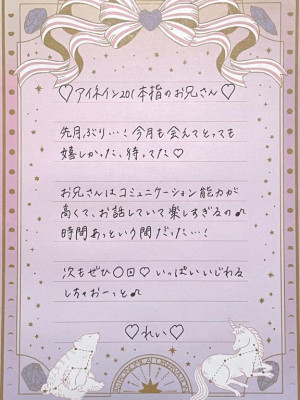 ♡アイネイン201本指のお兄さん♡
先月ぶり…!今月も会えてとっても
嬉しかった、待ってた♡
お兄さんはコミュニケーション能力が
高くて、お話していて楽しすぎるの♪
時間あっという間だった…!
次もぜひ〇回♡いっぱいいじわる
しちゃおーっと♪
♡れい♡